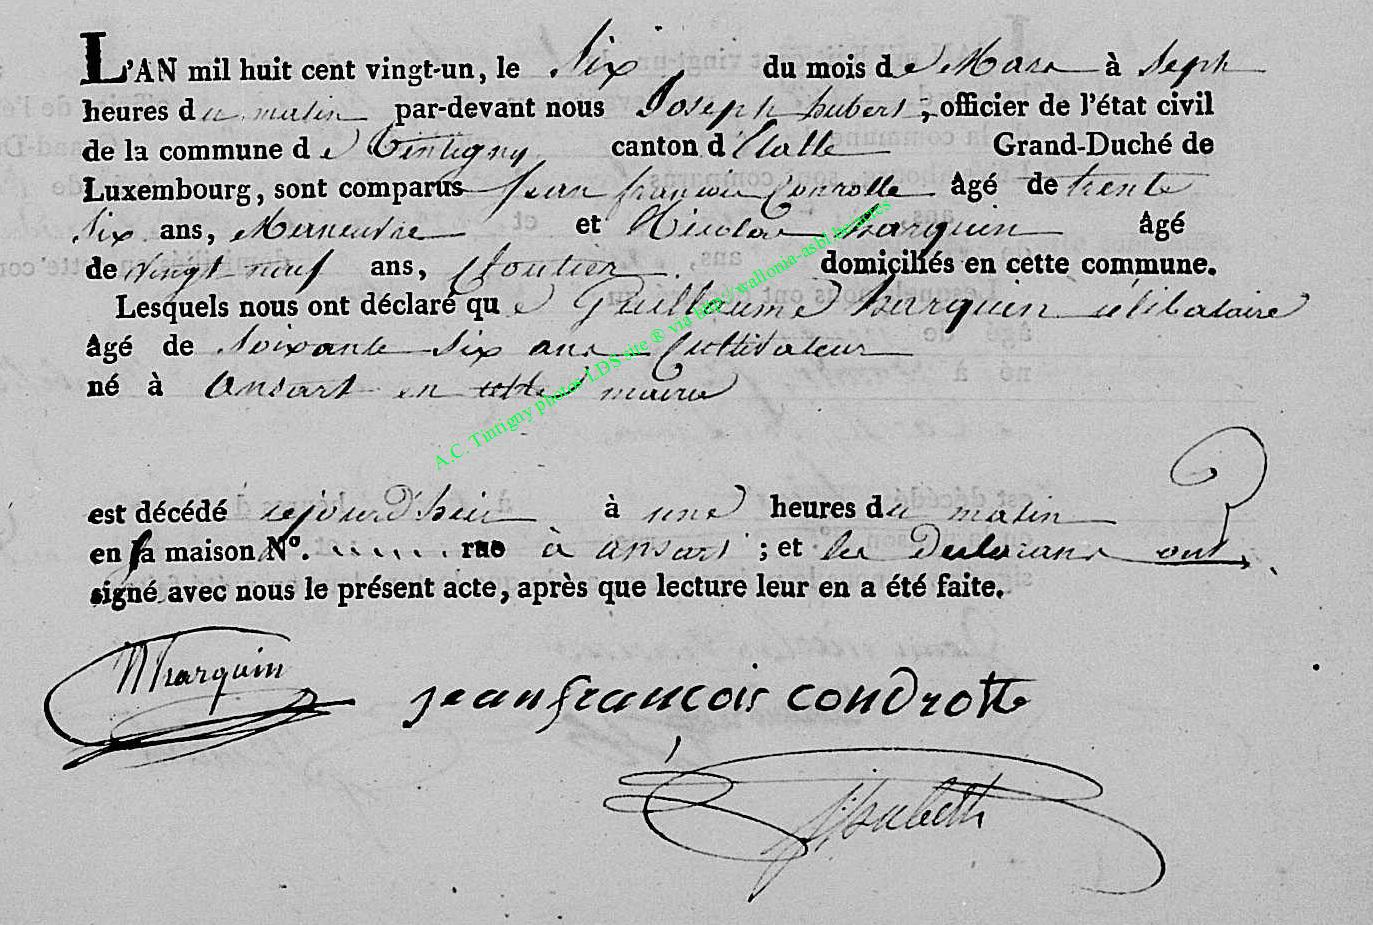 L'AN mil huit cent vingt-un, le Six du mois de Mars à Sept
heures du matin par-devant nous Joseph hubert, officier de l'état civil
de la commune de Tintigny canton d'Etalle Grand-Duché de
Luxembourg, sont comparus Jean françois Conrotte âgé de trente
Six ans, et Nicolas harquin âgé
de vingt neuf ans, Cloutier domiciliés en cette commune.
Lesquels nous ont déclaré que Guillaume harquin célibataire
âgé de Soixante Six ans Cultivateur
né à Ansart en cette mairie
est décédé cejourd'hui à une heures du matin
en sa maison N°. rue à ansart ; et les Déclarans ont
signé avec nous le présent acte, après que lecture leur en a été faite.
N harquin
jean françois condrotte
J. hubert
A.C. Tintigny photos LDS site ® via http://wallonia-asbl.be/actes